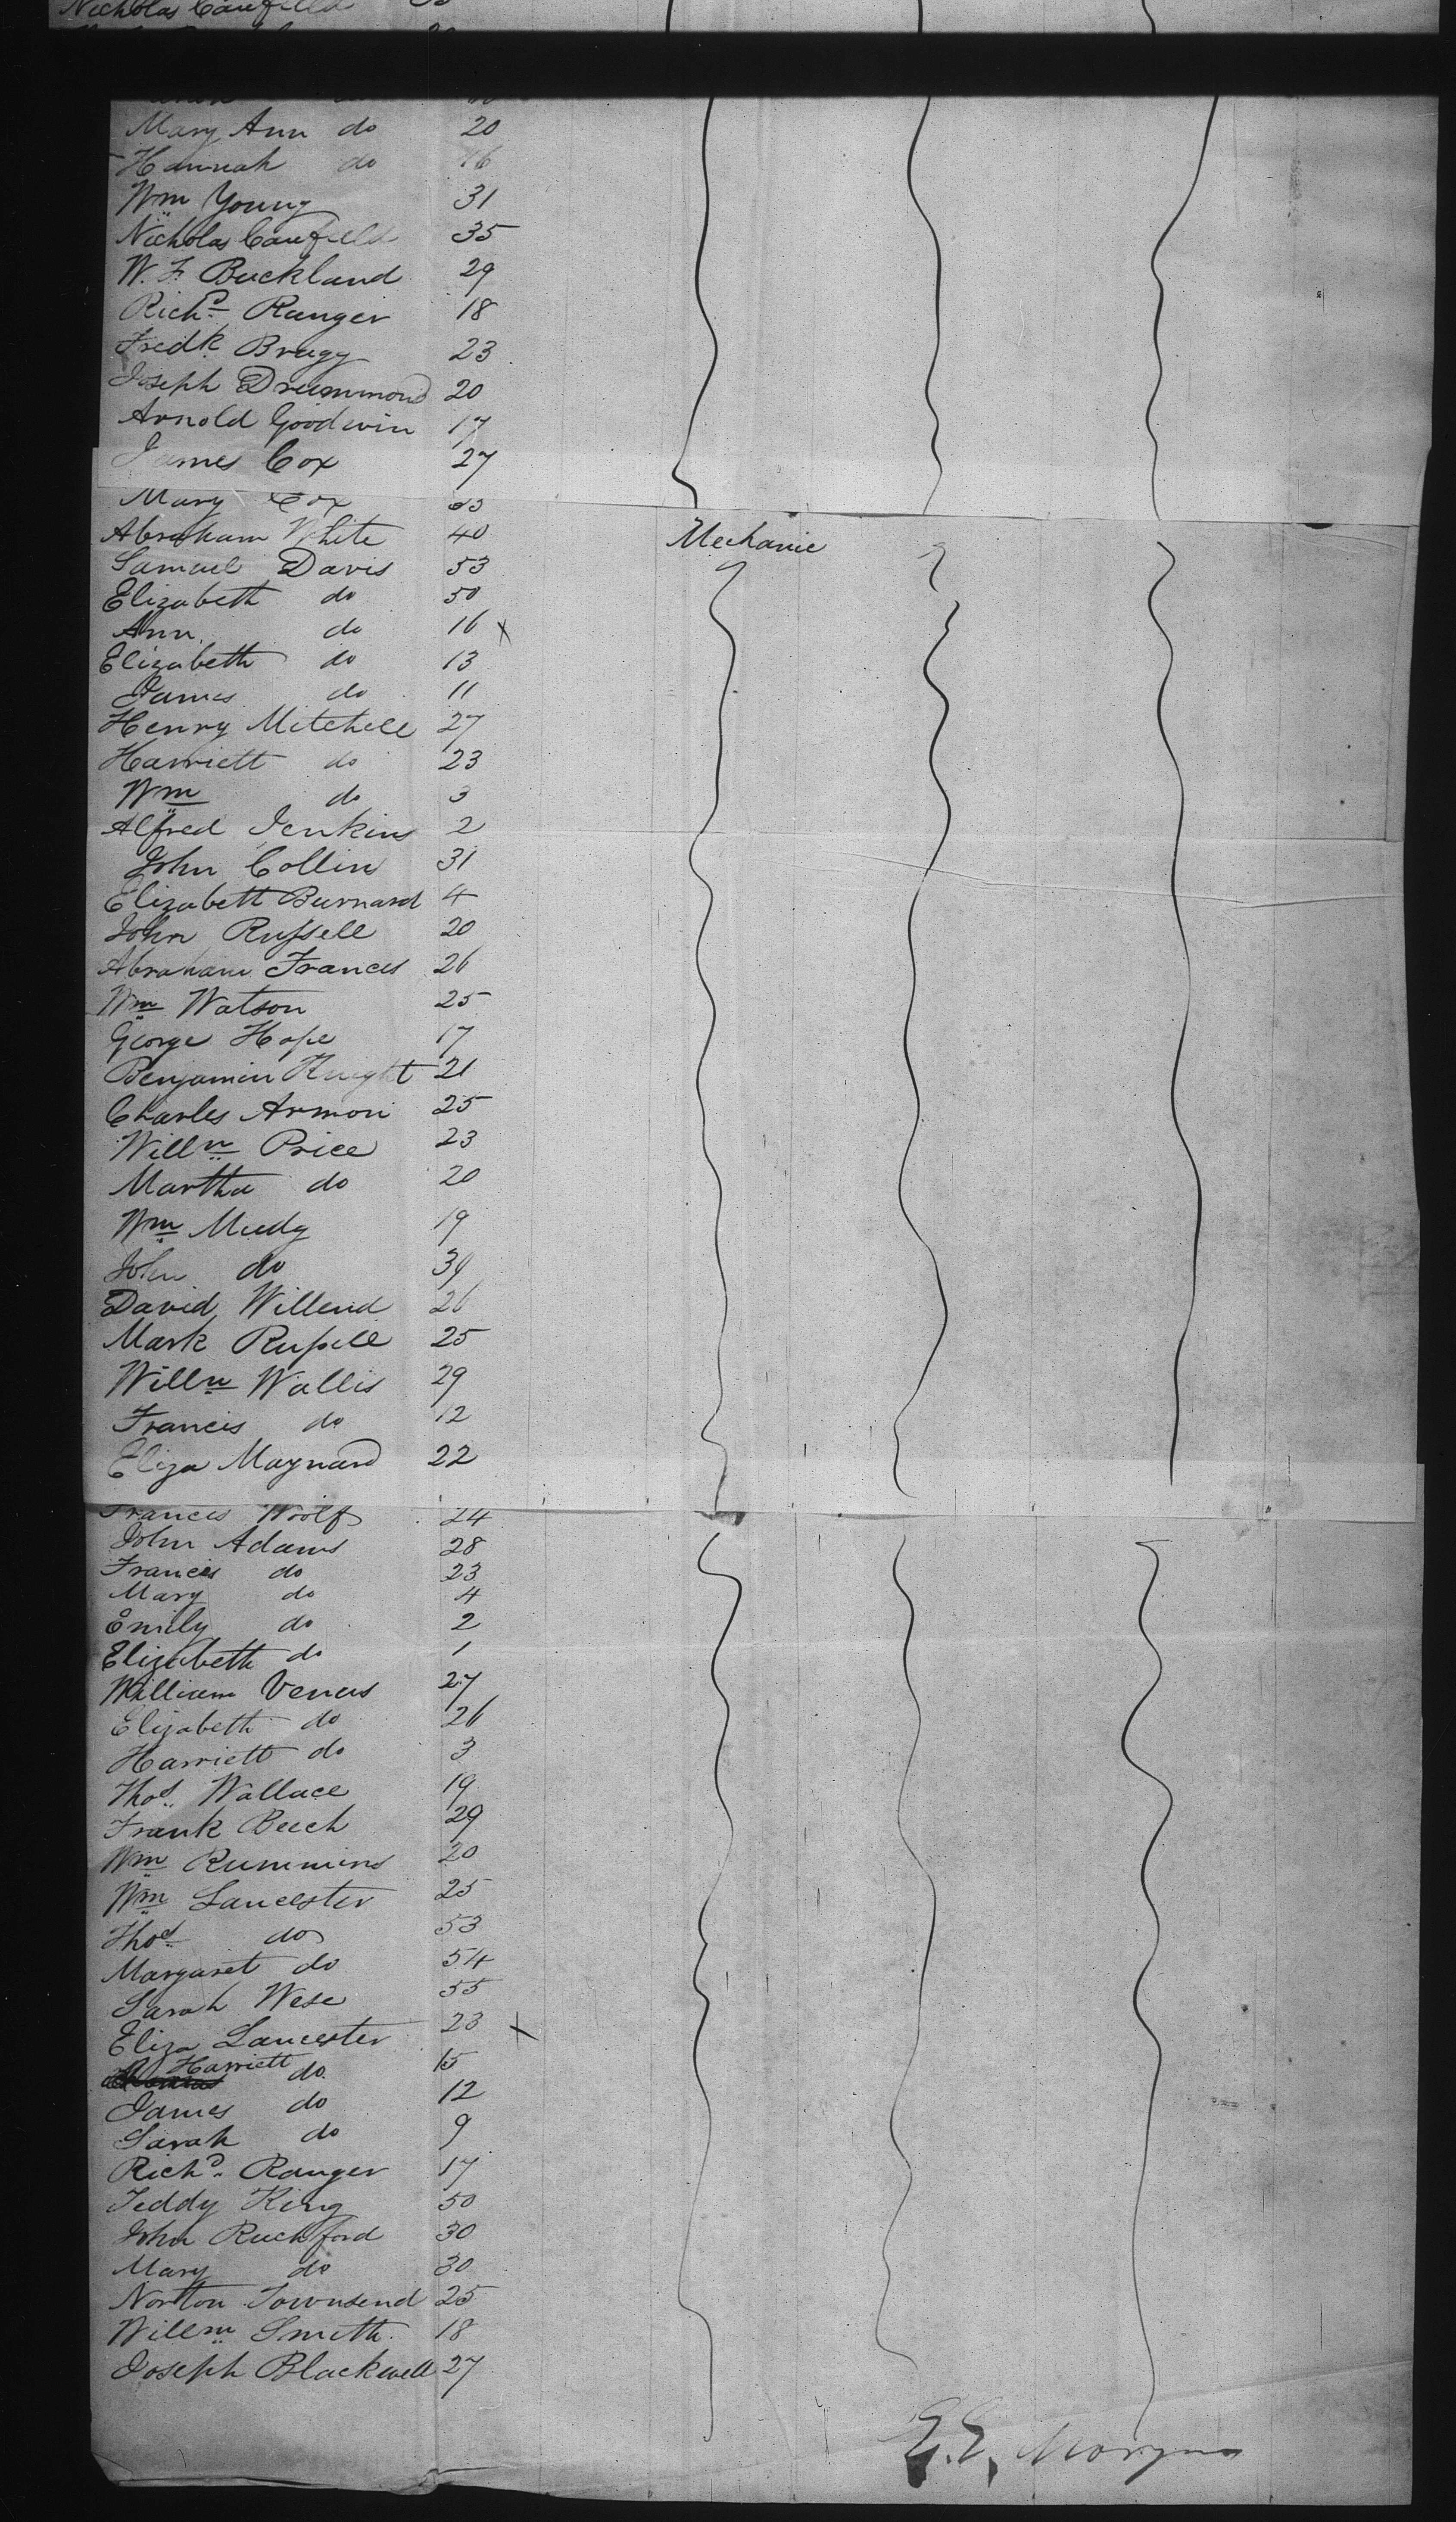 Nicholas Caufield 35
Mary Ann do 20
Hannah do 16
Wm Young 31
Nicholas Caufield 35
W. F. Buckland 29
Richd Ranger 18
Fredk Bragg 23
Joseph Drummond 20
Arnold Goodwin 17
James Cox 27
Mary Cox
Abraham White 40 Mechanic
Samuel Davis 53
Elizabeth do 50
Ann do 16 x
Elizabeth do 13
James do 11
Henry Mitchell 27
Harriett do 23
Wm do 3
Alfred Jenkins 2
John Collins 31
Elizabeth Burnard 4
John Russell 20
Abraham Frances 26
Wm Watson 25
George Hope 17
Benjamin Knight 21
Charles Armon 25
Willm Price 23
Martha do 20
Wm Mudg 19
John do 39
David Willend 26
Mark Russell 25
Willm Wallis 29
Francis do 12
Eliza Maynard 22
Frances Woolf 24
John Adams 28
Frances do 23
Mary do 4
Emily do 2
Elizabeth do 1
William Venus 27
Elizabeth do 26
Harriett do 3
Thos. Wallace 19
Frank Beech 29
Wm Rummins 20
Wm Lancester 25
Thos do 53
Margaret do 54
Sarah Wese 55
Eliza Lancester 23 x
Harriett do 15
James do 12
Sarah do 9
Richd. Ranger 17
Teddy King 50
John Ruchford 30
Mary do 30
Norton Townsend 25
Willm Smith 18
Joseph Blackwell 27
E. E. Morgan